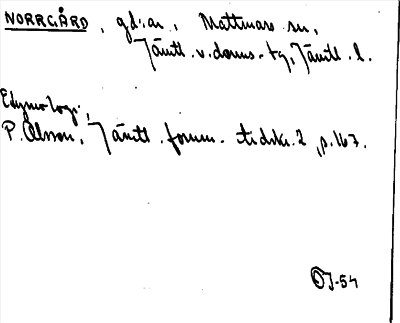 NORRGÅRD, gd:ar, Mattmars sn,
Jämtl. v. doms. tg, Jämtl. l.
Etymologi,
P. Olsson, Jämtl. fornm. tidskr. 2, p. 167.
OJ-54